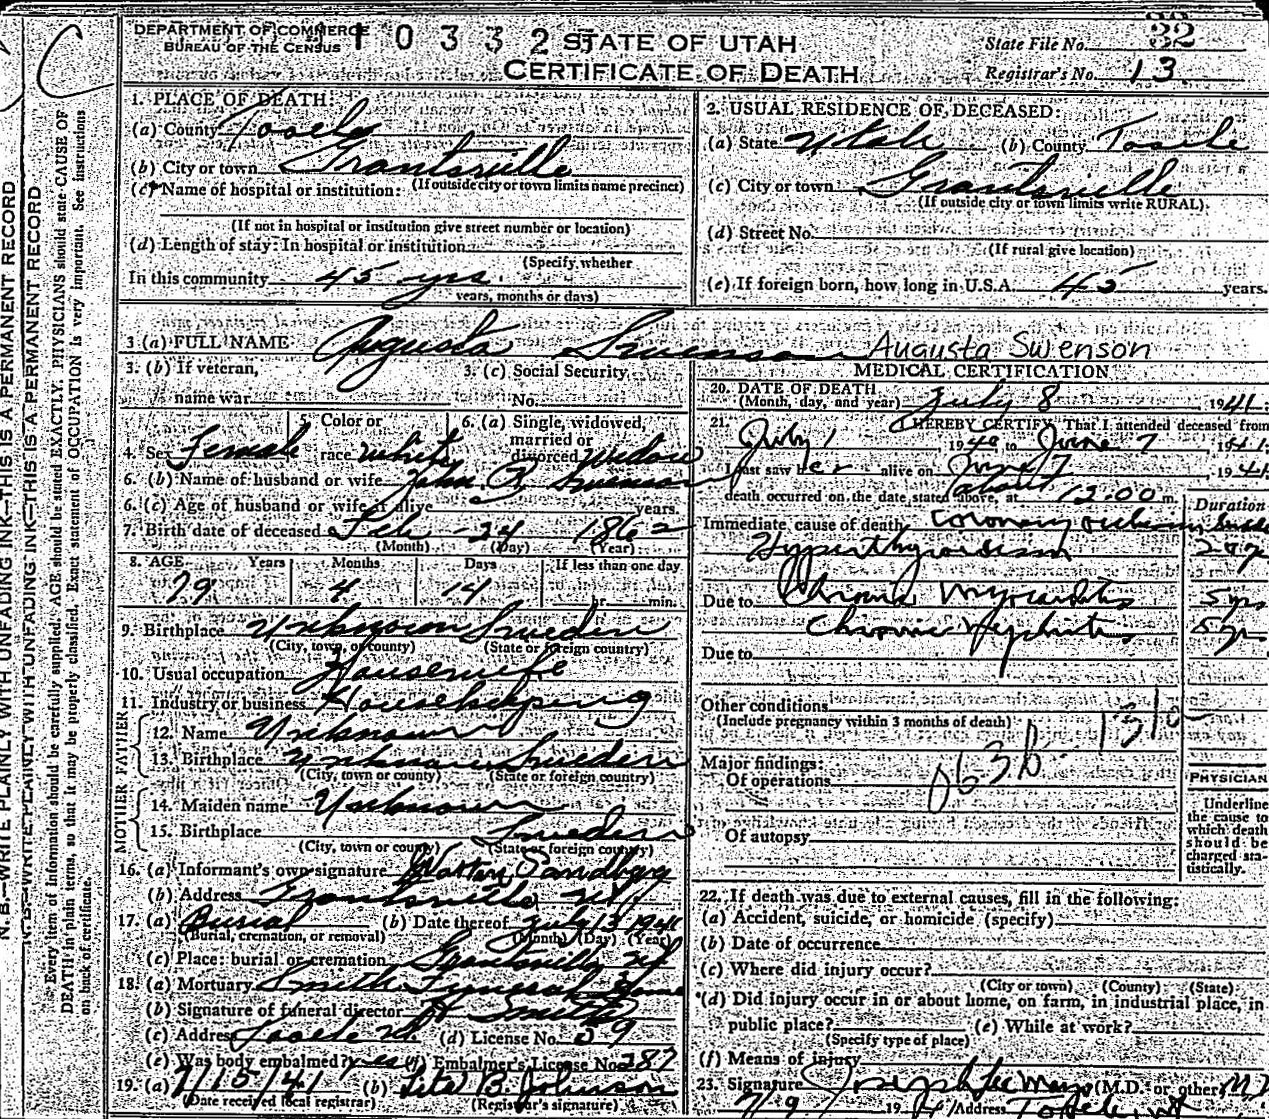 DEPARTMENT OF COMMERCE
BUREAU OF THE CENSUS
1 0 3 3 2 5
STATE OF UTAH
CERTIFICATE OF DEATH
State File No. 32
Registrar's No. 13
1. PLACE OF DEATH:
(a) County Tooele
(b) City or town Grantsville
(If outside city or town limits name precinct)
(c) Name of hospital or institution:
(If not in hospital or institution give street number or location)
(d) Length of stay: In hospital or institution
(Specify whether
In this community 45 yrs.
years, months or days)
2. USUAL RESIDENCE OF DECEASED:
(a) State Utah (b) County Tooele
(c) City or town Grantsville
(If outside city or town limits write RURAL).
(d) Street No.
(If rural give location)
(e) If foreign born, how long in U.S.A. 45 years.
3 (a) FULL NAME Augusta Swenson Augusta Swenson
3. (b) If veteran,
name war
3. (c) Social Security
No.
4. Sex Female
5. Color or
race White
6. (a) Single, widowed,
married or
divorced Widow
6. (b) Name of husband or wife John P. Swenson
6. (c) Age of husband or wife if alive years.
7. Birth date of deceased Feb - 24 1862
(Month) (Day) (Year)
8. AGE Years Months Days If less than one day
79 4 14 hr. min.
9. Birthplace Unknown Sweden
(City, town, or county) (State or foreign country)
10. Usual occupation Housewife
11. Industry or business Housekeeping
FATHER
12. Name Unknown
13. Birthplace Unknown Sweden
(City, town or county) (State or foreign country)
MOTHER
14. Maiden name Unknown
15. Birthplace Sweden
(City, town or county) (State or foreign country)
16. (a) Informant's own signature Sandberg
(b) Address Grantsville Ut
17. (a) Burial (b) Date thereof July 13 1941
(Burial, cremation, or removal) (Month) (Day) (Year)
(c) Place: burial or cremation Grantsville Ut
18. (a) Mortuary Smith Funeral Home
(b) Signature of funeral director Smith
(c) Address Tooele Ut. (d) License No. 59
(e) Was body embalmed? yes (f) Embalmer's License No. 287
19. (a) 7/15/41 (b) B. Johnson
(Date received local registrar) (Registrar's signature)
MEDICAL CERTIFICATION
20. DATE OF DEATH
(Month, day, and year) July 8 1941.
21. I HEREBY CERTIFY, That I attended deceased from
July 1 1940, to June 7, 1941.
I last saw her alive on June 7 1941
death occurred on the date stated above, at about 12:00 m.
Duration
Immediate cause of death Coronary occlusion
Hyperthyroidism 2 yrs
Due to Chronic Myocarditis 5 yrs
Chronic Nephritis 5 yrs
Due to
Other conditions
(Include pregnancy within 3 months of death)
Major findings:
Of operations
063b
Of autopsy
PHYSICIAN
Underline
the cause to
which death
should be
charged sta-
tistically.
22. If death was due to external causes, fill in the following:
(a) Accident, suicide, or homicide (specify)
(b) Date of occurrence
(c) Where did injury occur?
(City or town) (County) (State)
(d) Did injury occur in or about home, on farm, in industrial place, in
public place? (e) While at work?
(Specify type of place)
(f) Means of injury
23. Signature Joseph (M.D. or other) M.D
7/9 1941 Address Tooele, Ut
N. B.—WRITE PLAINLY WITH UNFADING INK—THIS IS A PERMANENT RECORD
N. B.—WRITE PLAINLY WITH UNFADING INK—THIS IS A PERMANENT RECORD
Every item of information should be carefully supplied. AGE should be stated EXACTLY. PHYSICIANS should state CAUSE OF
DEATH in plain terms, so that it may be properly classified. Exact statement of OCCUPATION is very important. See instructions
on back of certificate.